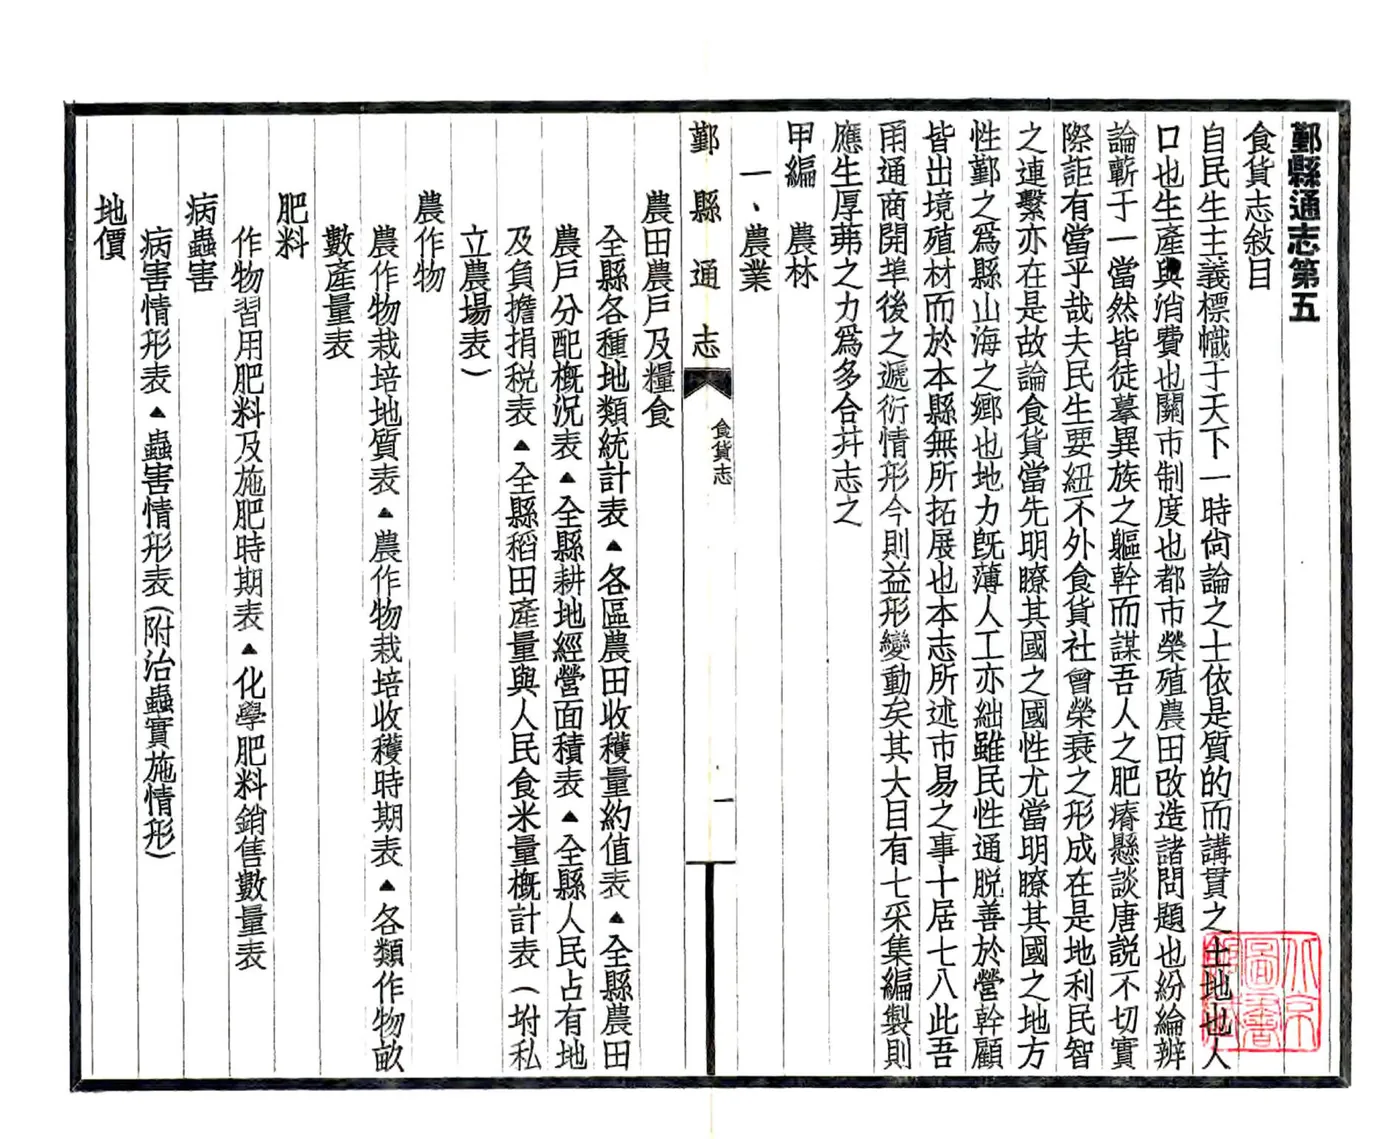 鄞縣通志第五
食貨志敍目
自民生主義標幟于天下一時尙論之士依是質的而講貫之土地也人
口也生產與消費也關市制度也都市榮殖農田改造諸問題也紛綸辨
論蘄于一當然皆徒摹異族之軀幹而謀吾人之肥瘠懸談唐說不切實
際詎有當乎哉夫民生要紐不外食貨社會榮衰之形成在是地利民智
之連繫亦在是故論食貨當先明瞭其國之國性尤當明瞭其國之地方
性鄞之爲縣山海之鄕也地力旣薄人工亦絀雖民性通脫善於營幹顧
皆出境殖材而於本縣無所拓展也本志所述市易之事十居七八此吾
甬通商開埠後之遞衍情形今則益形變動矣其大目有七采集編製則
應生厚茀之力爲多合幷志之
甲編　農林
一、農業
鄞縣通志
食貨志
一
農田農戶及糧食
全縣各種地類統計表▲各區農田收穫量約值表▲全縣農田
農戶分配槪況表▲全縣耕地經營面積表▲全縣人民占有地
及負擔捐税表▲全縣稻田產量與人民食米量槪計表(坿私
立農場表)
農作物
農作物栽培地質表▲農作物栽培收穫時期表▲各類作物畝
數產量表
肥料
作物習用肥料及施肥時期表▲化學肥料銷售數量表
病蟲害
病害情形表▲蟲害情形表(附治蟲實施情形)
地價